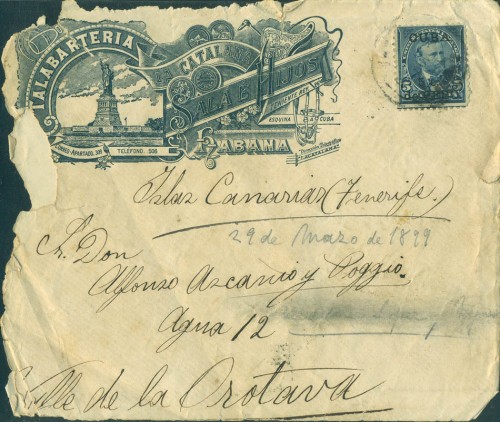 TALABARTERIA
LA CATALANA
SALA E HIJOS
TENIENTE REY
ESQUINA A CUBA
HABANA
CORREO APARTADO, 319
TELÉFONO. 508
CUBA
Islas Canarias (Tenerife.)
29 de Marzo de 1899
Sr. Don
Alfonso Ascanio y Poggio.
Agua 12
Valle de la Orotava